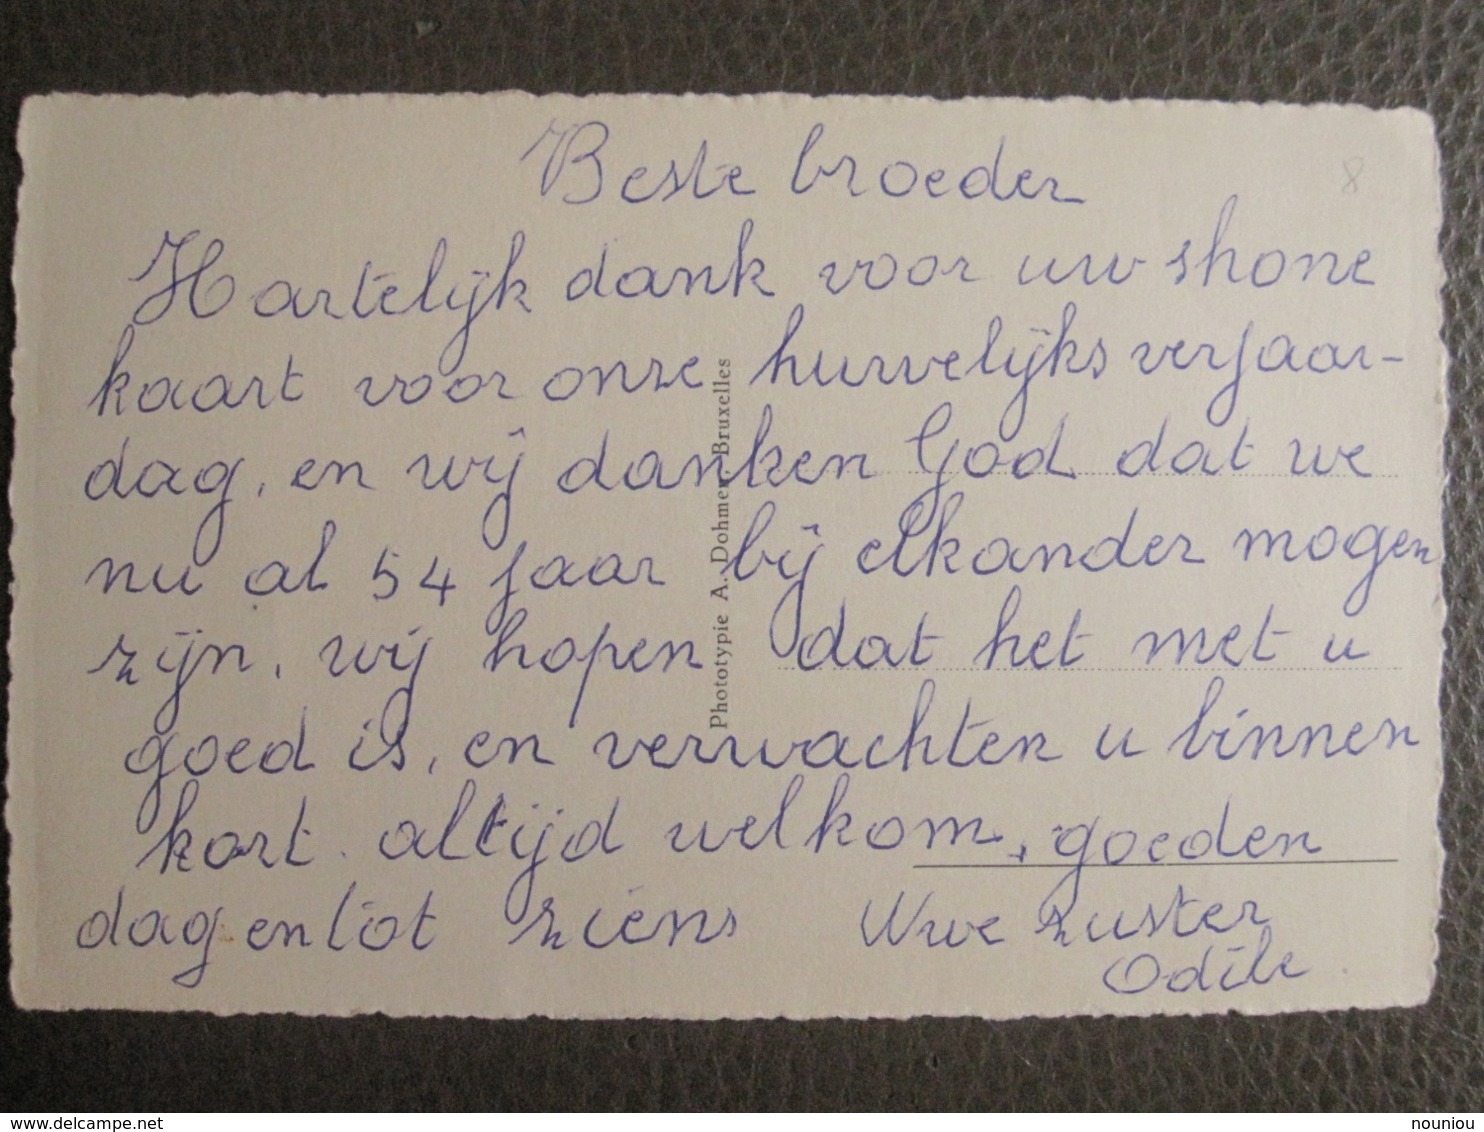 Beste broeder
8
Hartelijk dank voor uw shone
kaart voor onze huwelijks verjaar-
dag, en wij danken God dat we
nu al 54 jaar bij elkander mogen
zijn, wij hopen dat het met u
goed is, en verwachten u binnen
kort. altijd welkom, goeden
dag en tot ziens Uwe zuster
Odile
Phototypie A. Dohmen, Bruxelles
delcampe.net
nouniou